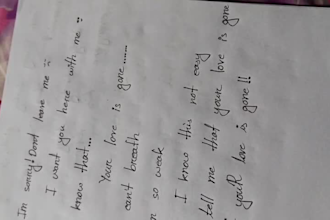 Im sorry! Dont leave me
I want you here with me
know that...
Your love is gone......
can't breath
so weak
I know this not easy
tell me that your love is gone
your love is gone!!